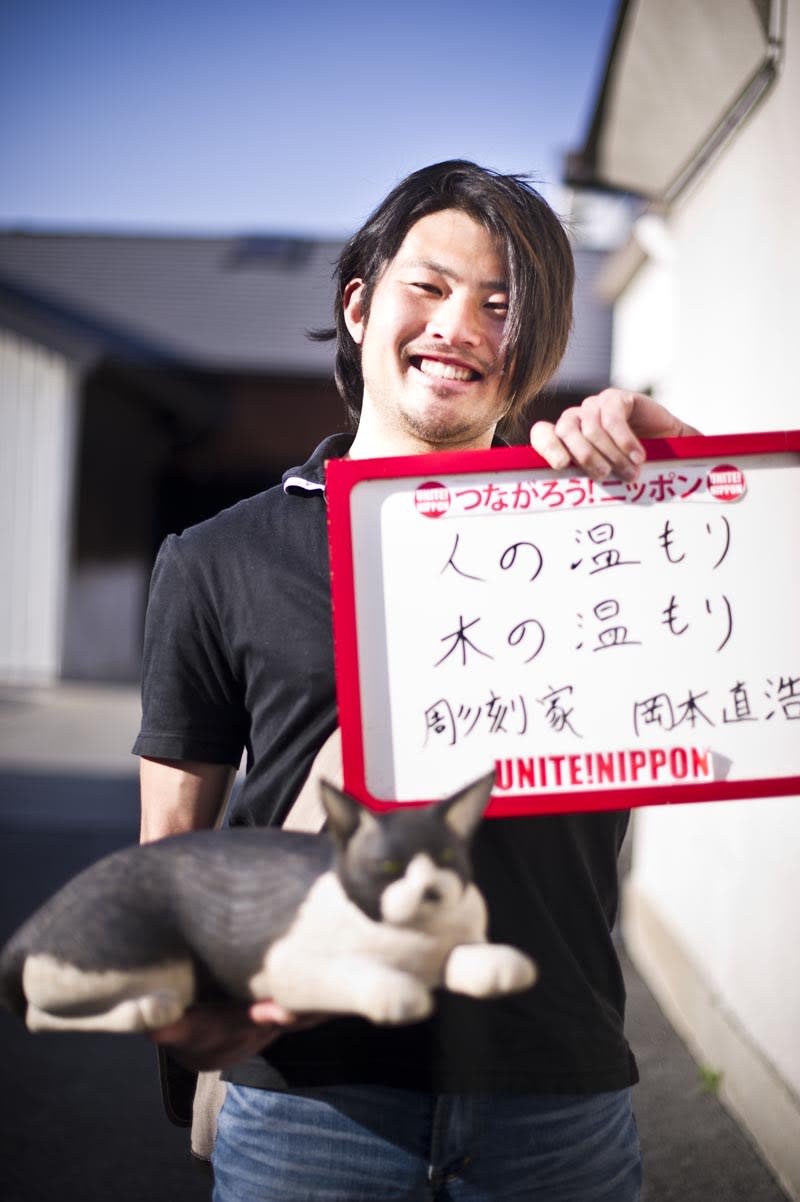 UNITE! NIPPON つながろう!ニッポン UNITE! NIPPON
人の温もり
木の温もり
彫刻家 岡本直浩
UNITE!NIPPON